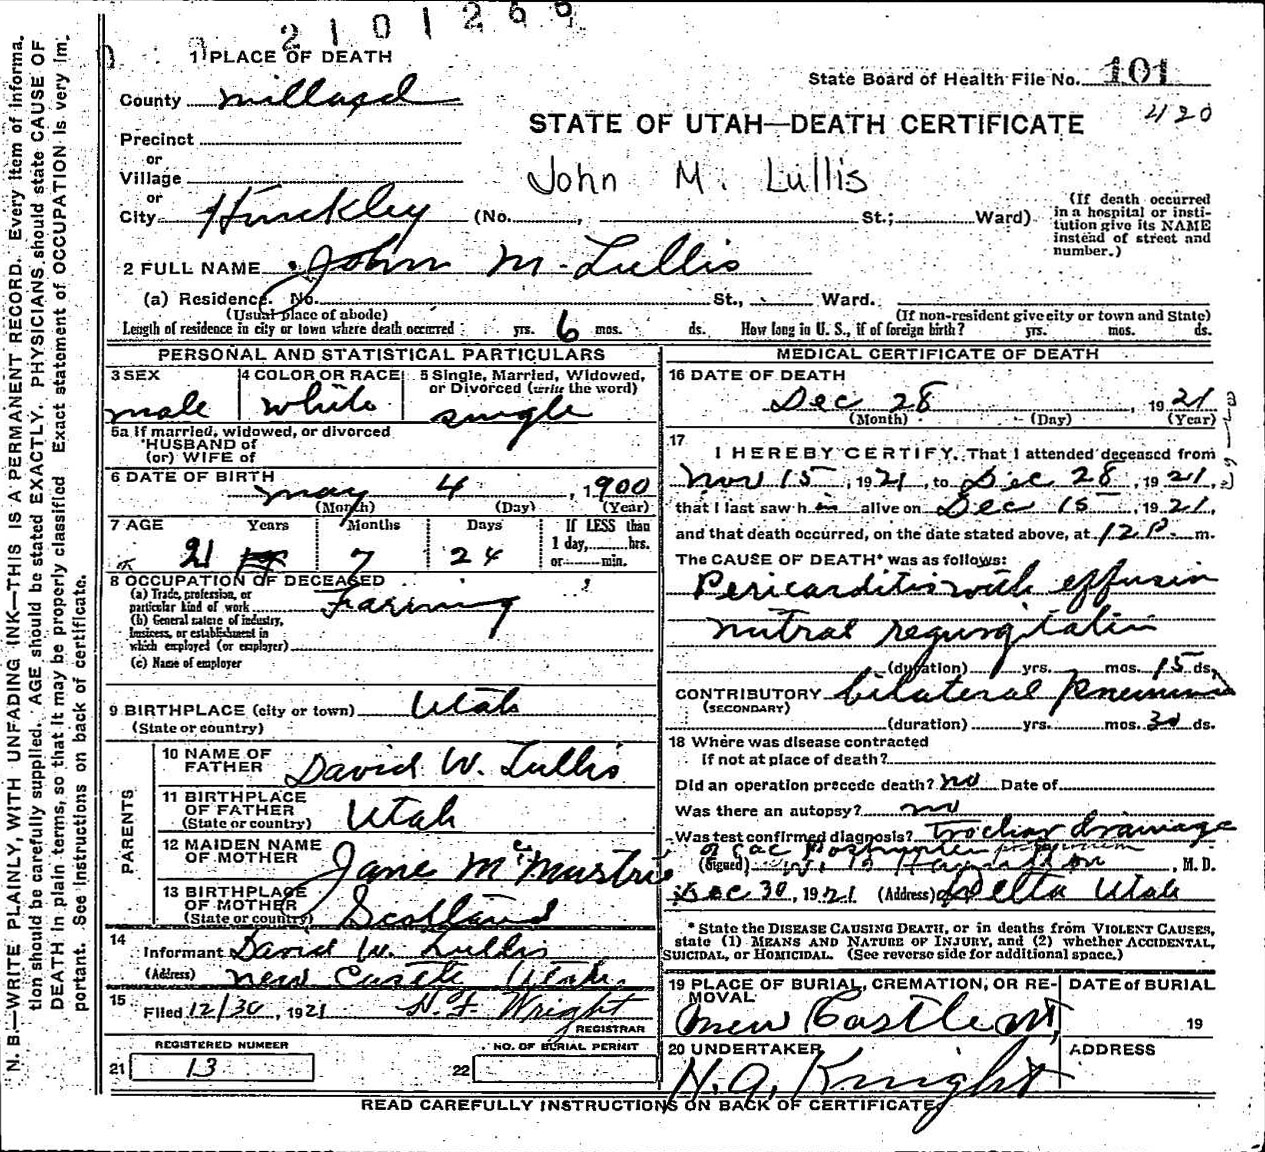 2101266
1 PLACE OF DEATH
State Board of Health File No. 101
County Millard
420
STATE OF UTAH—DEATH CERTIFICATE
Precinct
or
Village
John M. Lullis
or
City Hinckley (No. , St.; Ward)
(If death occurred in a hospital or institution give its NAME instead of street and number.)
2 FULL NAME John M. Lullis
(a) Residence. No. St., Ward.
(Usual place of abode) (If non-resident give city or town and State)
Length of residence in city or town where death occurred yrs. 6 mos. ds. How long in U. S., if of foreign birth? yrs. mos. ds.
PERSONAL AND STATISTICAL PARTICULARS
3 SEX 4 COLOR OR RACE 5 Single, Married, Widowed, or Divorced (write the word)
male white single
5a If married, widowed, or divorced
HUSBAND of
(or) WIFE of
6 DATE OF BIRTH
May 4, 1900
(Month) (Day) (Year)
7 AGE Years Months Days If LESS than
1 day, hrs.
21 7 24 or min.
8 OCCUPATION OF DECEASED
(a) Trade, profession, or
particular kind of work Farming
(b) General nature of industry,
business, or establishment in
which employed (or employer)
(c) Name of employer
9 BIRTHPLACE (city or town) Utah
(State or country)
PARENTS
10 NAME OF
FATHER David W. Lullis
11 BIRTHPLACE
OF FATHER
(State or country) Utah
12 MAIDEN NAME
OF MOTHER Jane McMustrie
13 BIRTHPLACE
OF MOTHER
(State or country) Scotland
14
Informant David W. Lullis
(Address) New Castle Utah.
15
Filed 12/30, 1921 N. F. Wright
REGISTRAR
REGISTERED NUMBER NO. OF BURIAL PERMIT
21 13 22
MEDICAL CERTIFICATE OF DEATH
16 DATE OF DEATH
Dec 28, 1921
(Month) (Day) (Year)
17
I HEREBY CERTIFY, That I attended deceased from
Nov 15, 1921, to Dec 28, 1921,
that I last saw him alive on Dec 15, 1921,
and that death occurred, on the date stated above, at 12 P. m.
The CAUSE OF DEATH* was as follows:
Pericarditis with effusion
mitral regurgitation
(duration) yrs. mos. 15 ds.
CONTRIBUTORY bilateral pneumonia
(SECONDARY)
(duration) yrs. mos. 30 ds.
18 Where was disease contracted
If not at place of death?
Did an operation precede death? no Date of
Was there an autopsy? no
Was test confirmed diagnosis? Trochar drainage
of sac Postmortem
(Signed) , M. D.
Dec 30, 1921 (Address) Delta Utah
* State the DISEASE CAUSING DEATH, or in deaths from VIOLENT CAUSES,
state (1) MEANS AND NATURE OF INJURY, and (2) whether ACCIDENTAL,
SUICIDAL, or HOMICIDAL. (See reverse side for additional space.)
19 PLACE OF BURIAL, CREMATION, OR REMOVAL DATE of BURIAL
New Castle Ut 19
20 UNDERTAKER ADDRESS
N. A. Knight
READ CAREFULLY INSTRUCTIONS ON BACK OF CERTIFICATE.
N. B.—WRITE PLAINLY, WITH UNFADING INK—THIS IS A PERMANENT RECORD. Every item of information should be carefully supplied. AGE should be stated EXACTLY. PHYSICIANS should state CAUSE OF DEATH in plain terms, so that it may be properly classified. Exact statement of OCCUPATION is very important. See instructions on back of certificate.